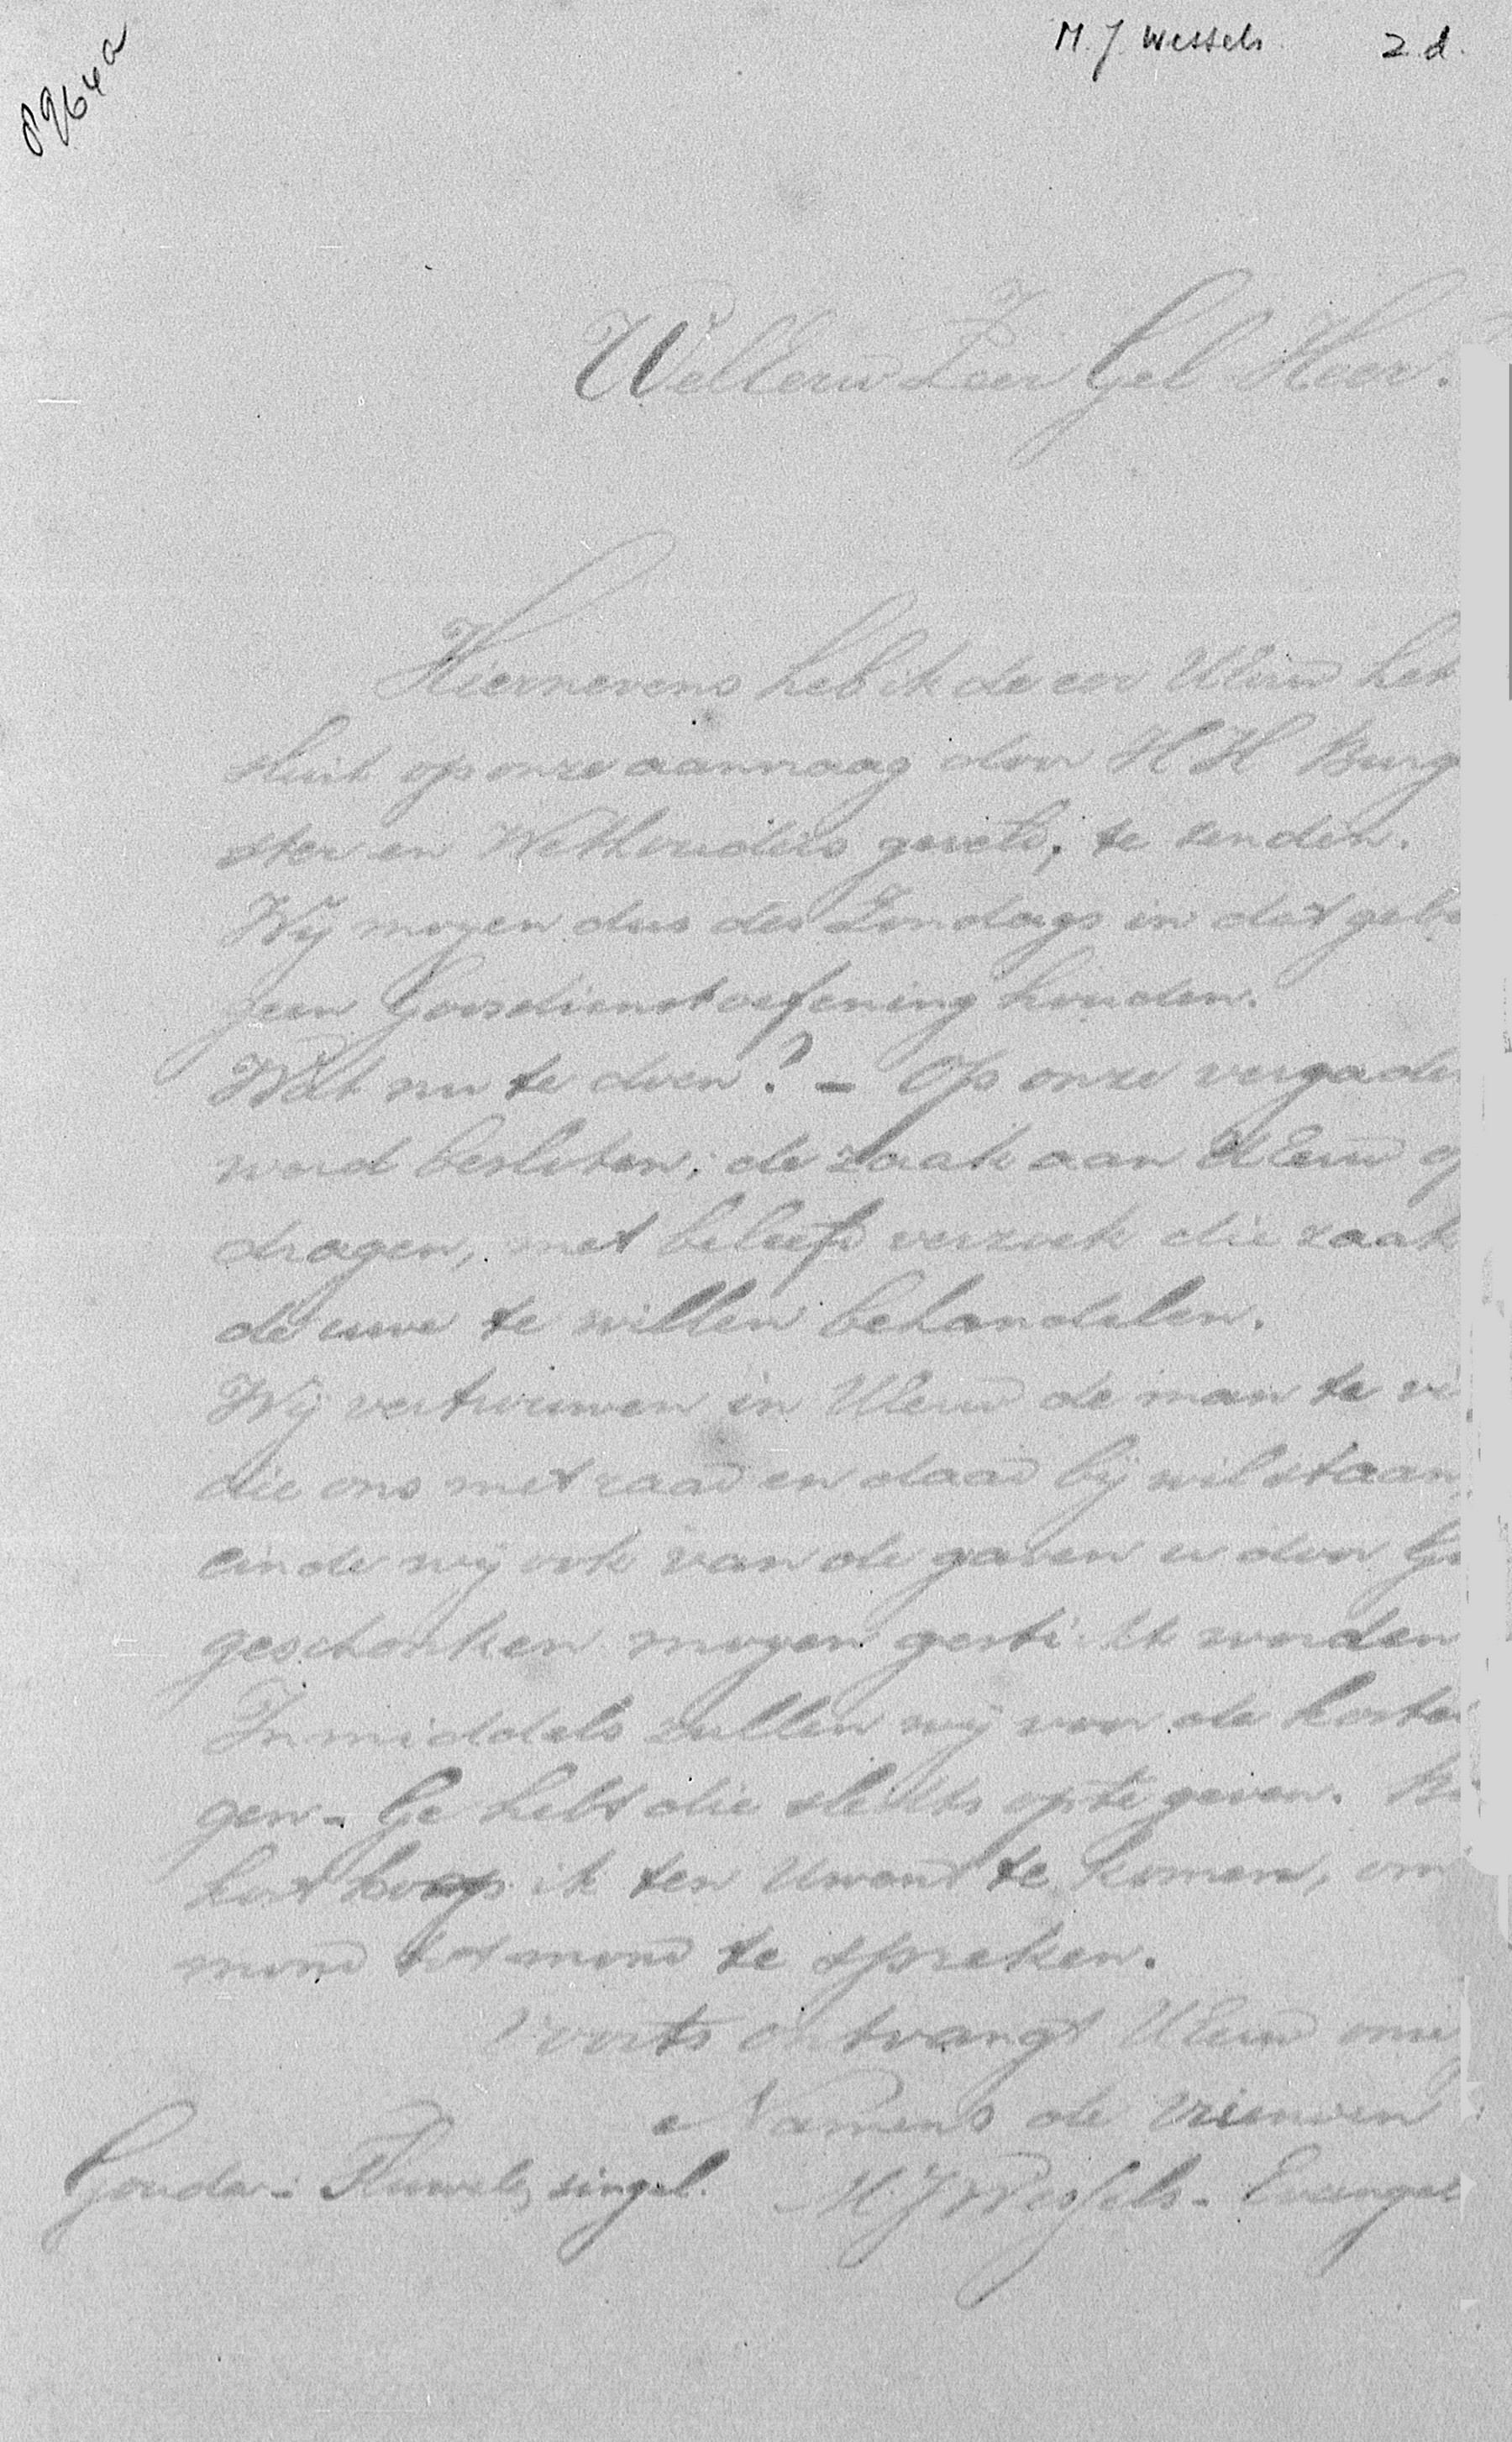 M. J. Wessels z.d.
8964a
WelEerw Zeer Gel Heer.
Hiernevens heb ik de eer UEerw het
sluit op onze aanvraag door H H Burg
ster en Wethouders te zenden.
Wij mogen dus des Zondags in dat geb
geen Godsdienstoefening houden.
Wat nu te doen? – Op onze vergade
werd besloten; de zaak aan UEerw o
dragen, met beleefd verzoek die zaak
de uwe te willen behandelen.
Wij vertrouwen in UEerw de man te vi
die ons met raad en daad bij wil staan,
einde wij ook van de gaven u door Go
geschonken mogen gesticht worden
Inmiddels zullen wij voor de koste
gen – Ge hebt die slechts op te geven. Bi
kort hoop ik ten Uwent te komen, om
mond tot mond te spreken.
Voorts ontvangt UEerw onze
Namens de vrienden
Gouda – Fluweele singel. M. J Wessels – Evangel